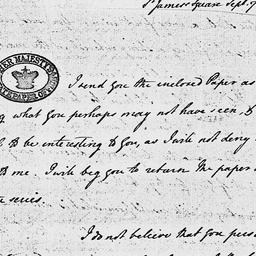 St James's Square Sept. 9
HER MAJESTY'S
STATE PAPER OFFICE
I send you the inclosed Paper as
what you perhaps may not have seen, &
be interesting to you, as I will not deny
to me. I will beg you to return the paper
I do not beleive that you